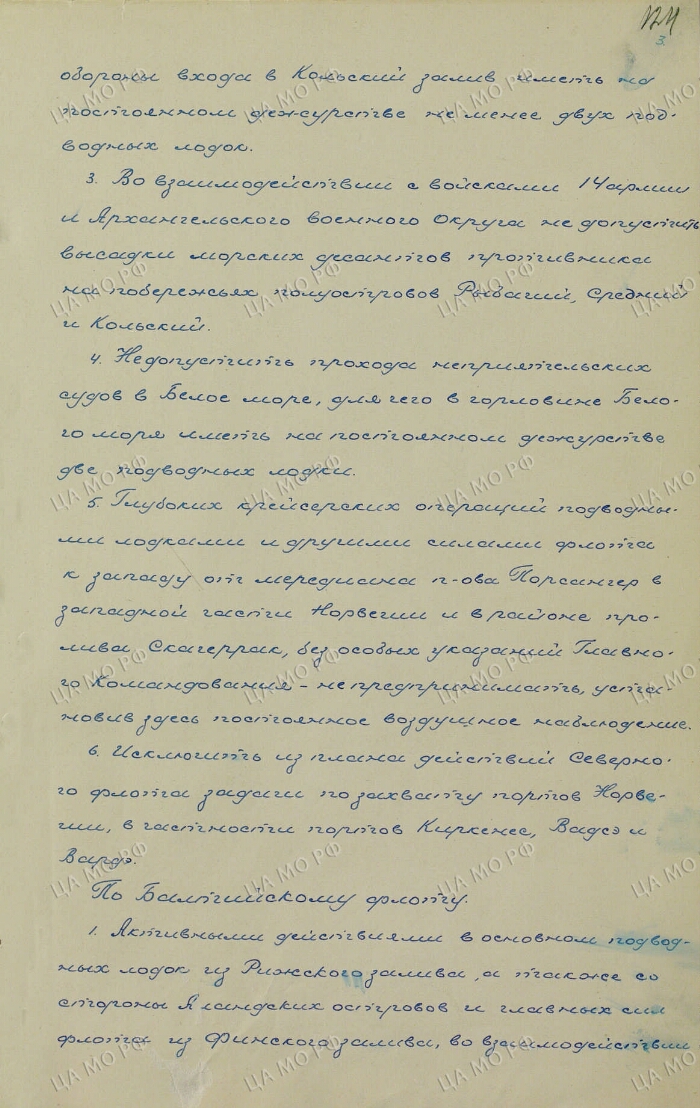 124
3.
обороны входа в Кольский залив иметь на
постоянном дежурстве не менее двух под-
водных лодок.
3. Во взаимодействии с войсками 14 армии
и Архангельского военного Округа не допустить
высадки морских десантов противника
на побережьях полуостровов Рыбачий, Средний
и Кольский.
4. Недопустить прохода неприятельских
судов в Белое море, для чего в горловине Бело-
го моря иметь на постоянном дежурстве
две подводных лодки.
5. Глубоких крейсерских операций подводны-
ми лодками и другими силами флота
к западу от меридиана п-ова Порсангер в
западной части Норвегии и в районе про-
лива Скагеррак, без особых указаний Главно-
го Командования – не предпринимать, уста-
новив здесь постоянное воздушное наблюдение.
6. Исключить из плана действий Северно-
го флота задачи по захвату портов Норве-
гии, в частности портов Киркенес, Вадсэ и
Вардэ.
По Балтийскому флоту.
1. Активными действиями в основном подвод-
ных лодок из Рижского залива, а также со
стороны Аландских островов и главных сил
флота из Финского залива, во взаимодействии